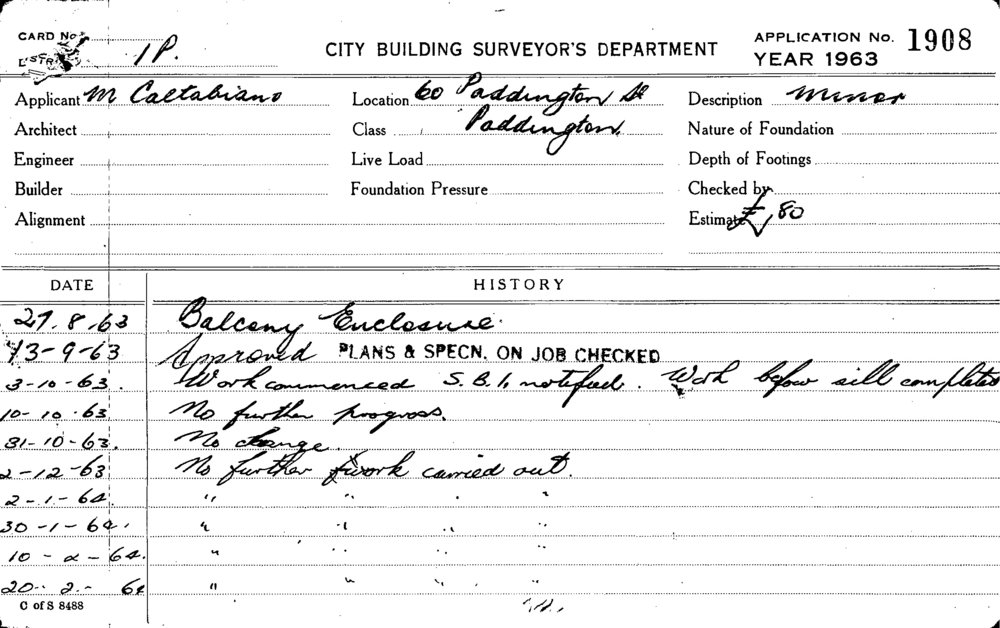 CARD No. CITY BUILDING SURVEYOR'S DEPARTMENT APPLICATION No. 1908
DISTRICT 1P. YEAR 1963
Applicant M Caltabiano Location 60 Paddington St Description Minor
Architect Class Paddington. Nature of Foundation
Engineer Live Load Depth of Footings
Builder Foundation Pressure Checked by
Alignment Estimate £180
DATE HISTORY
27.8.63 Balcony Enclosure.
13-9-63 Approved PLANS & SPECN. ON JOB CHECKED
3-10-63. Work commenced S.B.I. notified. Work below sill completed
10-10.63 No further progress.
31-10-63. No change.
2-12-63 No further work carried out.
2-1-64. " " " "
30-1-64. " " " "
10-2-64. " " " "
20-2-64 " " " "
C of S 8488